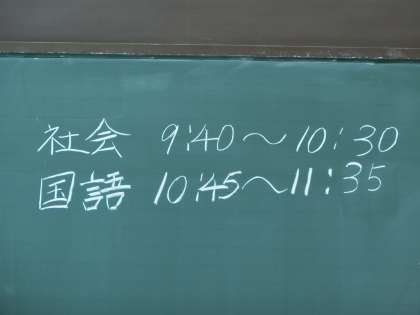 社会 9:40〜10:30
国語 10:45〜11:35